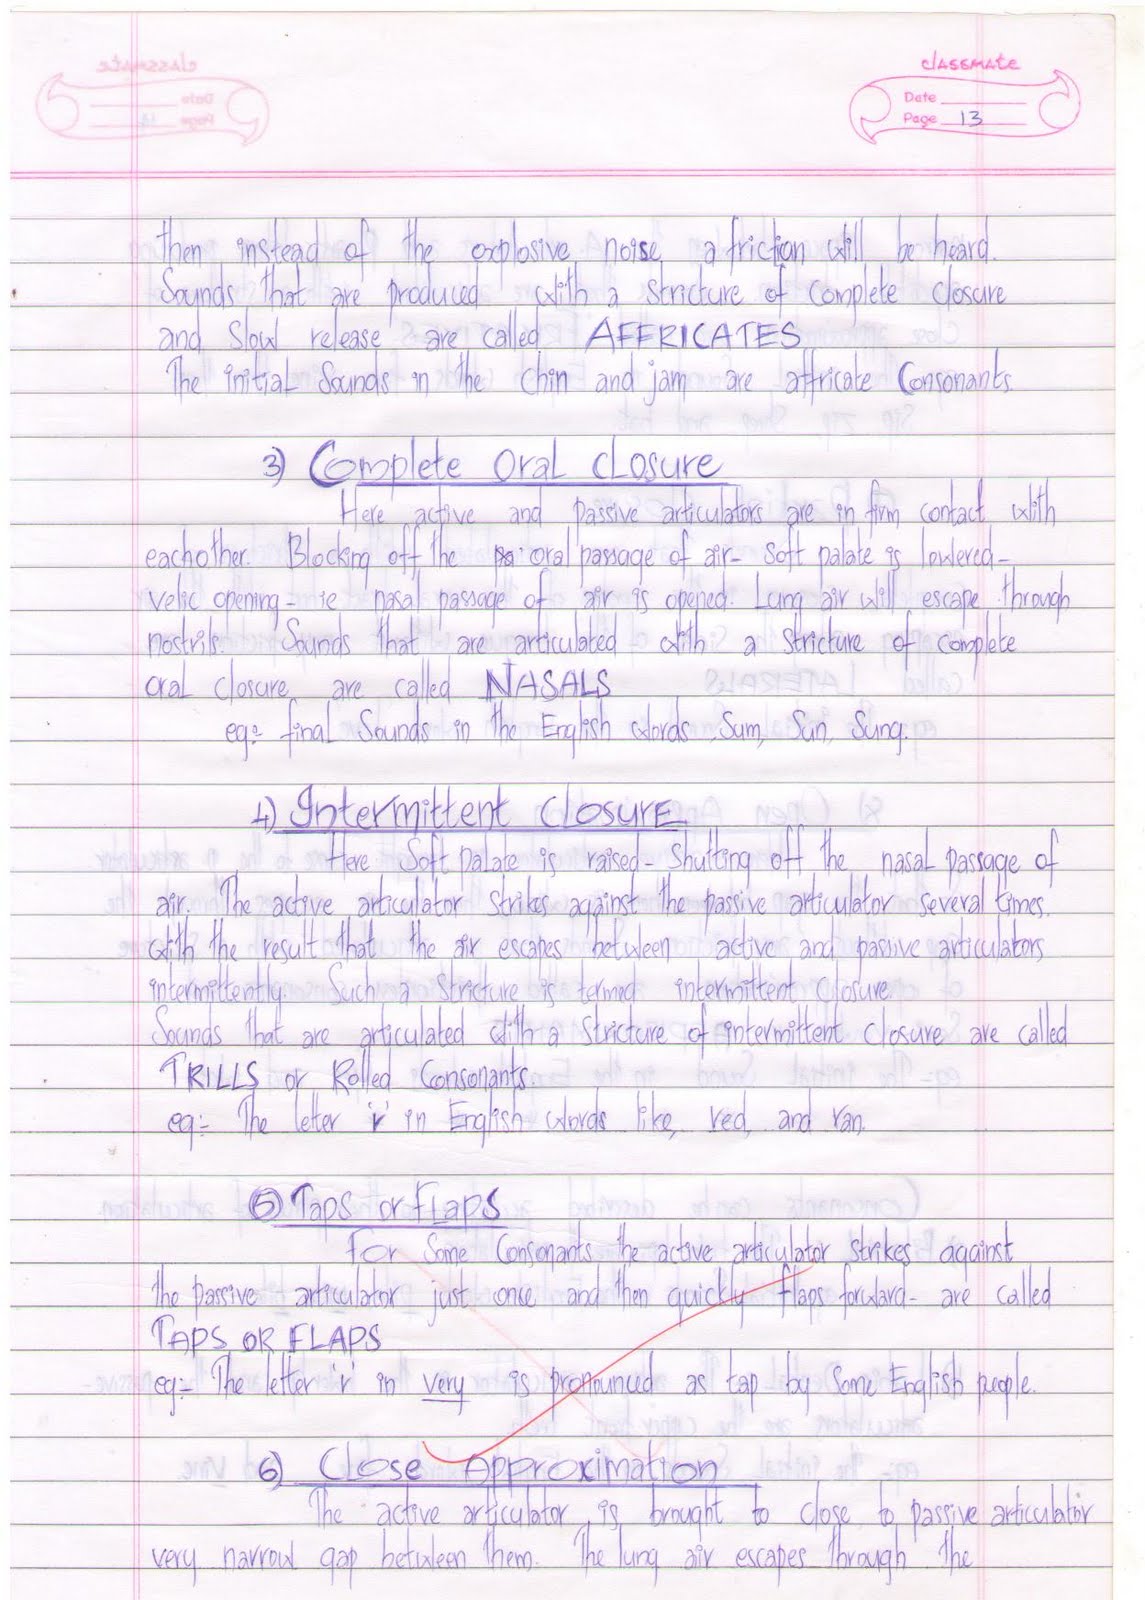 classmate
Date
Page 13
then instead of the explosive noise a friction will be heard.
Sounds that are produced with a stricture of complete closure
and slow release are called AFFRICATES
The initial sounds in the chin and jam are affricate Consonants.
3) Complete Oral Closure
Here active and passive articulators are in firm contact with
eachother. Blocking off the pa oral passage of air- soft palate is lowered-
velic opening- ie nasal passage of air is opened. Lung air will escape through
nostrils. Sounds that are articulated with a stricture of complete
oral closure are called NASALS
eg:- final Sounds in the English words Sum, Sun, Sung.
4) Intermittent Closure
Here Soft palate is raised- shutting off the nasal passage of
air. The active articulator strikes against the passive articulator several times.
with the result that the air escapes between active and passive articulators
intermittently. Such a stricture is termed intermittent closure.
Sounds that are articulated with a stricture of intermittent closure are called
TRILLS or Rolled Consonants.
eg:- The letter 'r' in English words like, red, and ran.
5) Taps or Flaps
For Some Consonants the active articulator strikes against
the passive articulator just once and then quickly flaps forward- are called
TAPS OR FLAPS
eg:- The letter 'r' in very is pronounced as tap by some English people.
6) Close Approximation
The active articulator is brought to close to passive articulator
very narrow gap between them. The lung air escapes through the